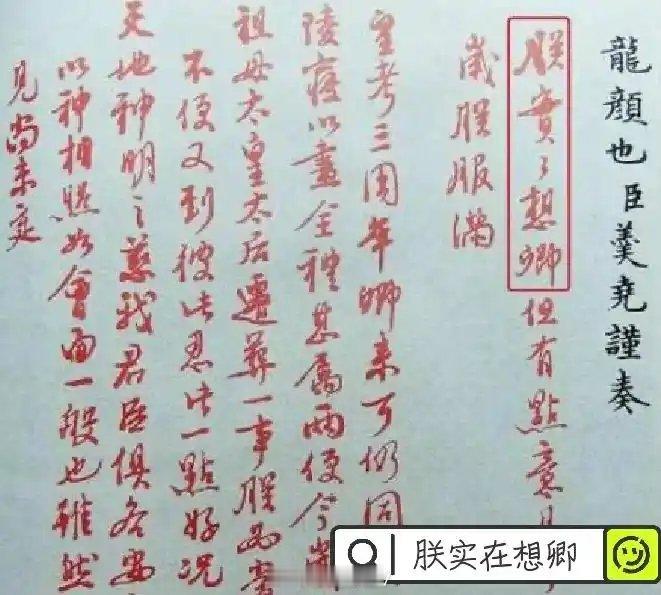 龍顏也臣羹堯謹奏
朕實々想卿但有點意
歲朕服滿
皇考三周年卿來可仍同
陵寢以盡全禮甚屬兩便今歲
祖母太皇太后遷葬一事朕
不便又到彼此忍此一點好況
天地神明之慈我君臣俱各安
以神相照如會面一般也雖然
見尚未定
朕实在想卿